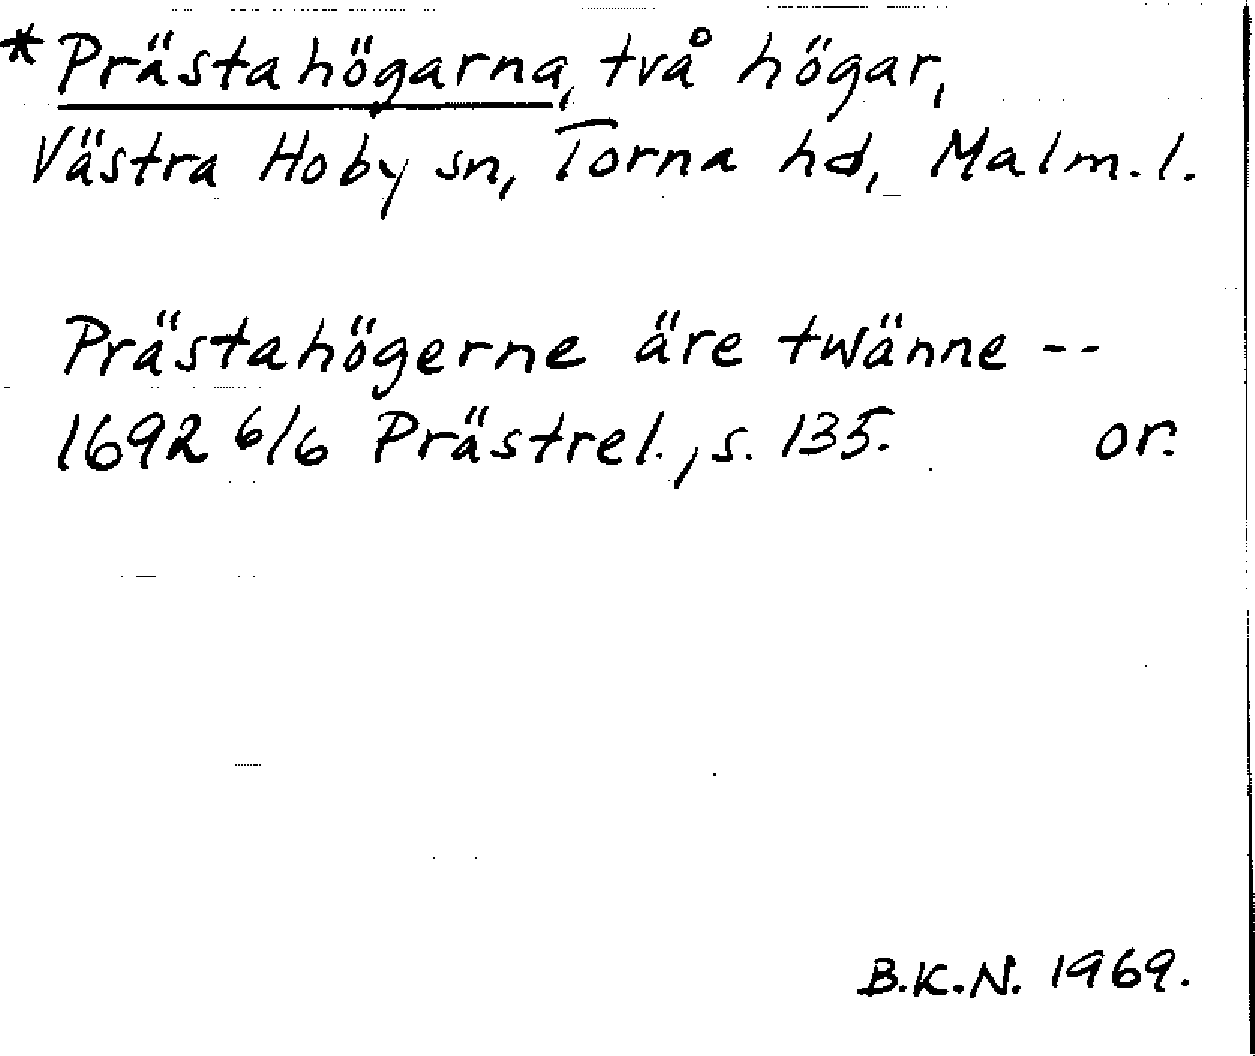 *Prästahögarna, två högar,
Västra Hoby sn, Torna hd, Malm.l.
Prästahögerne äre twänne --
1692 6/6 Prästrel., s. 135. or.
B.K.N. 1969.